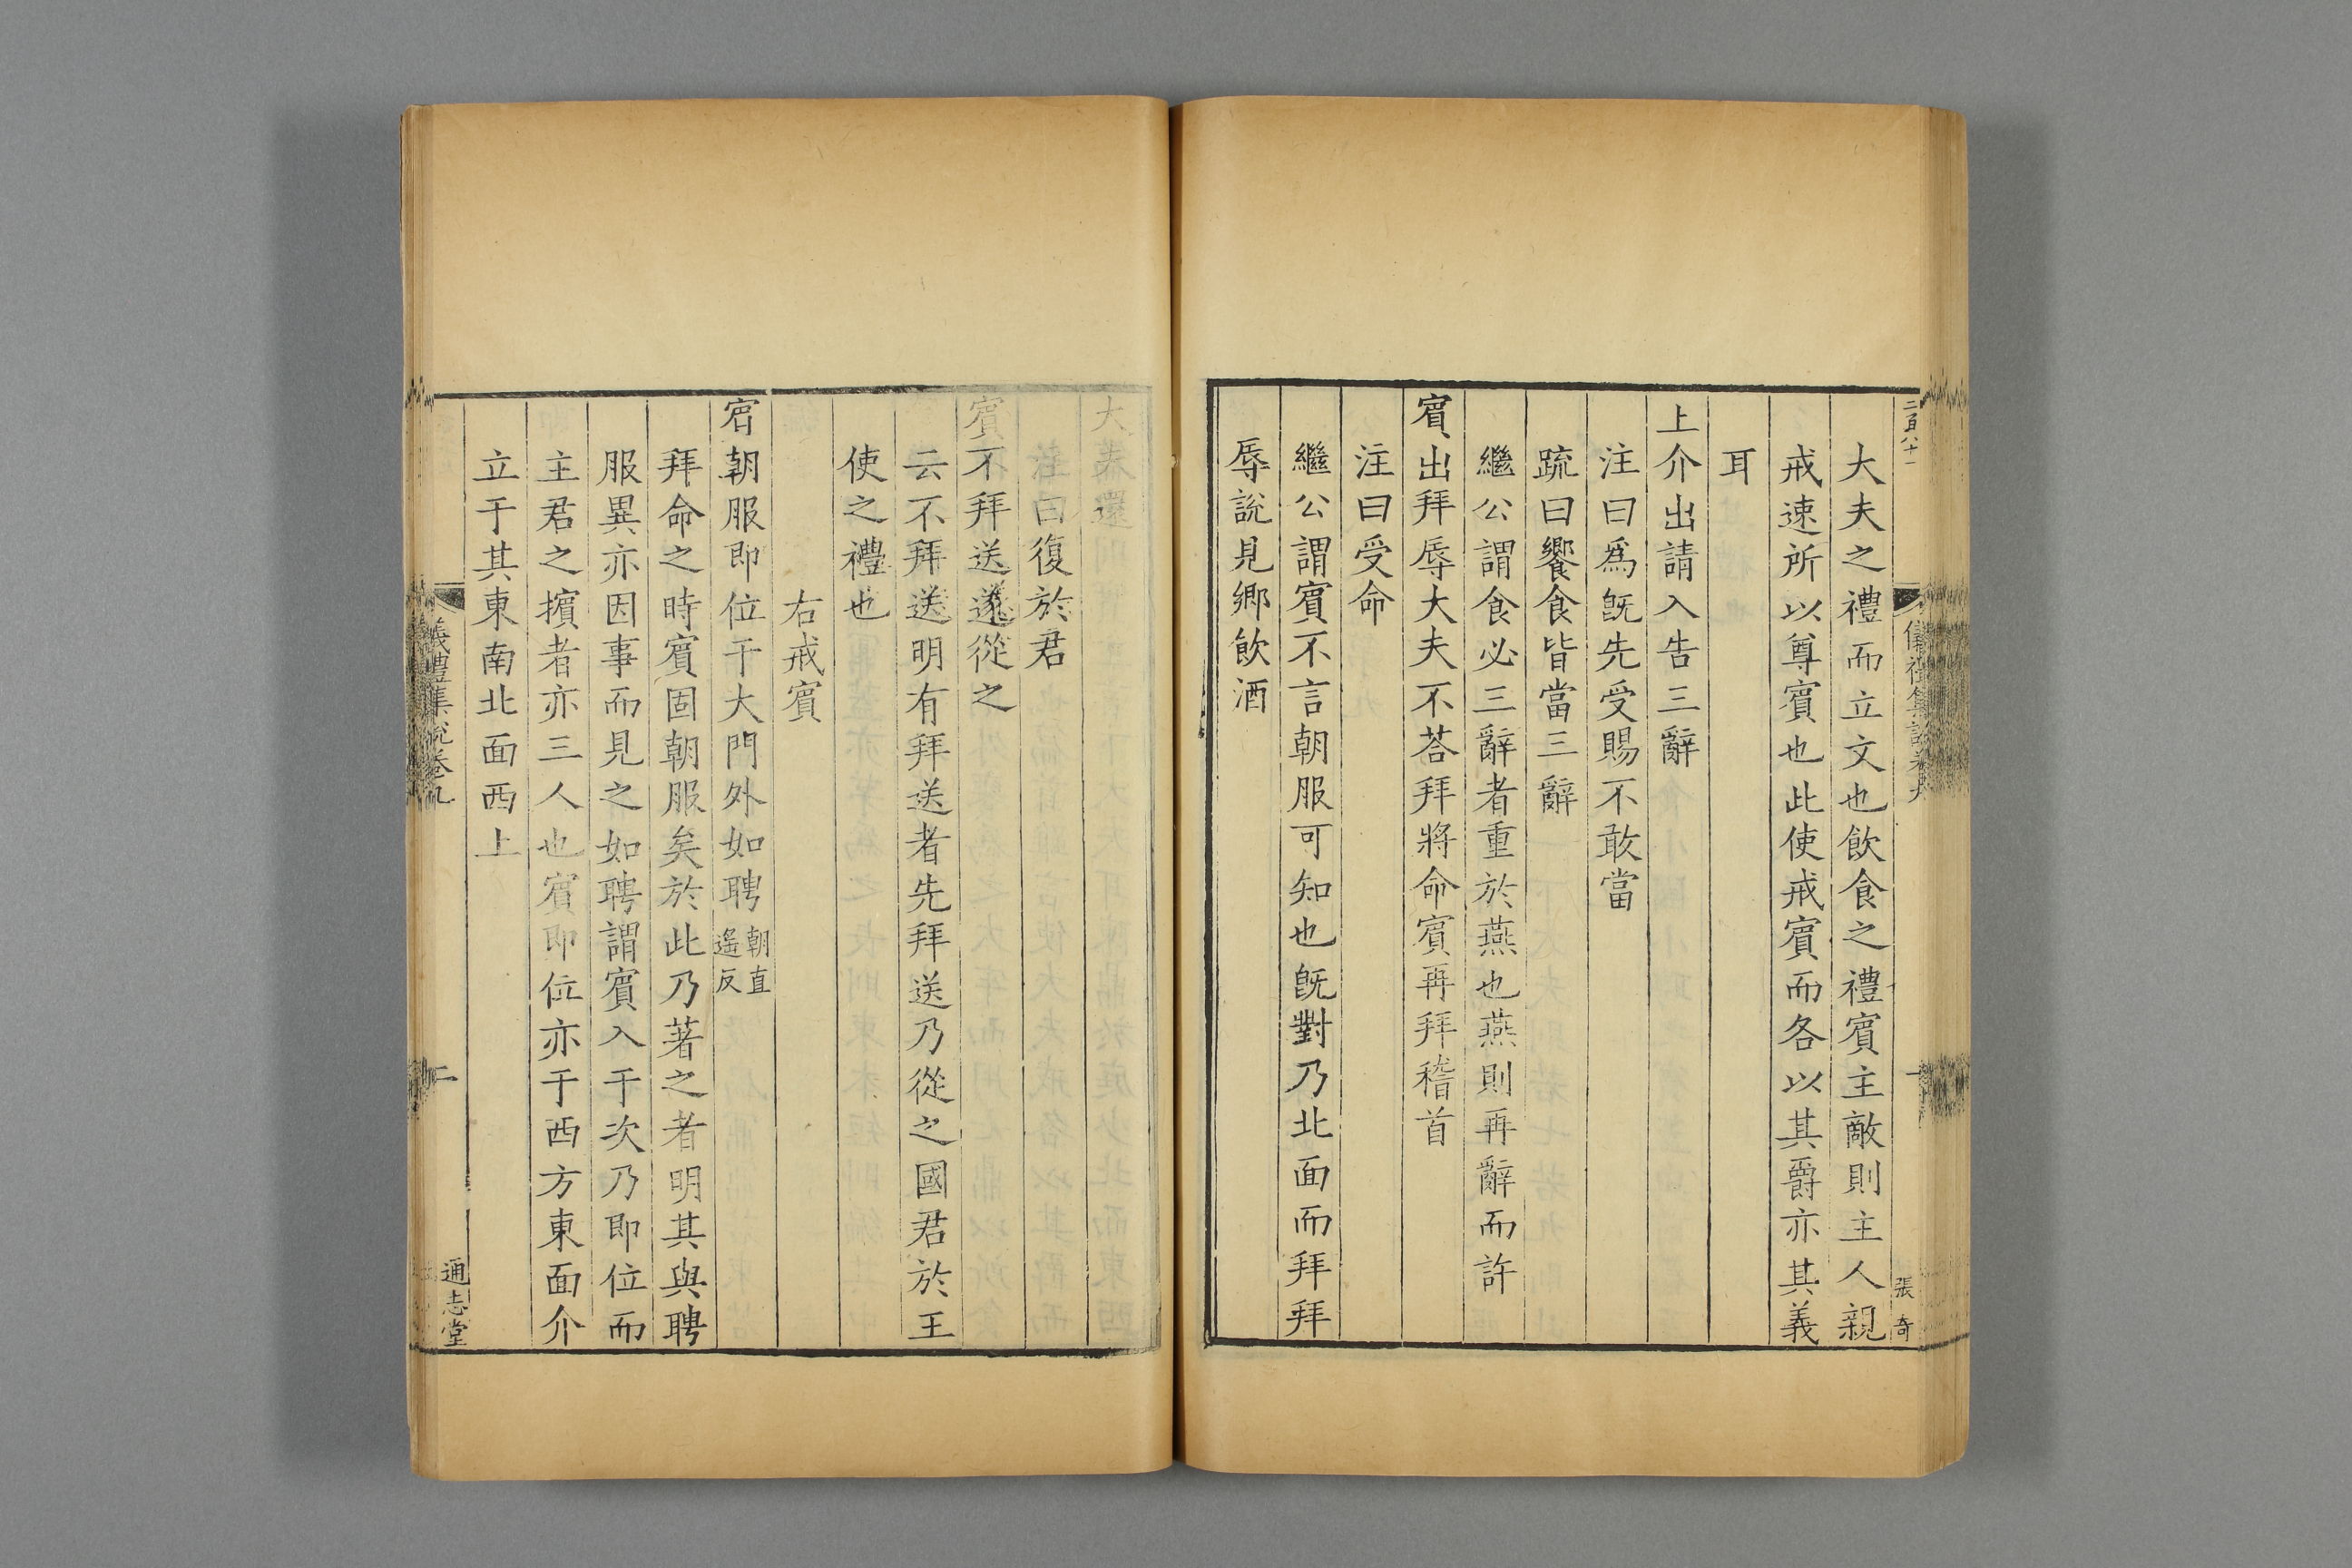 二百八十一
儀禮集說卷九
一
張奇
大夫之禮而立文也飲食之禮賓主敵則主人親
戒速所以尊賓也此使戒賓而各以其爵亦其義
耳
上介出請入告三辭
注曰爲旣先受賜不敢當
疏曰饗食皆當三辭
繼公謂食必三辭者重於燕也燕則再辭而許
賓出拜辱大夫不荅拜將命賓再拜稽首
注曰受命
繼公謂賓不言朝服可知也旣對乃北面而拜拜
辱說見鄉飲酒
大夫還
注曰復於君
賓不拜送遂從之
云不拜送明有拜送者先拜送乃從之國君於王
使之禮也
右戒賓
賓朝服即位于大門外如聘朝直遙反
拜命之時賓固朝服矣於此乃著之者明其與聘
服異亦因事而見之如聘謂賓入于次乃即位而
主君之擯者亦三人也賓即位亦于西方東面介
立于其東南北面西上
儀禮集說卷九
二
通志堂